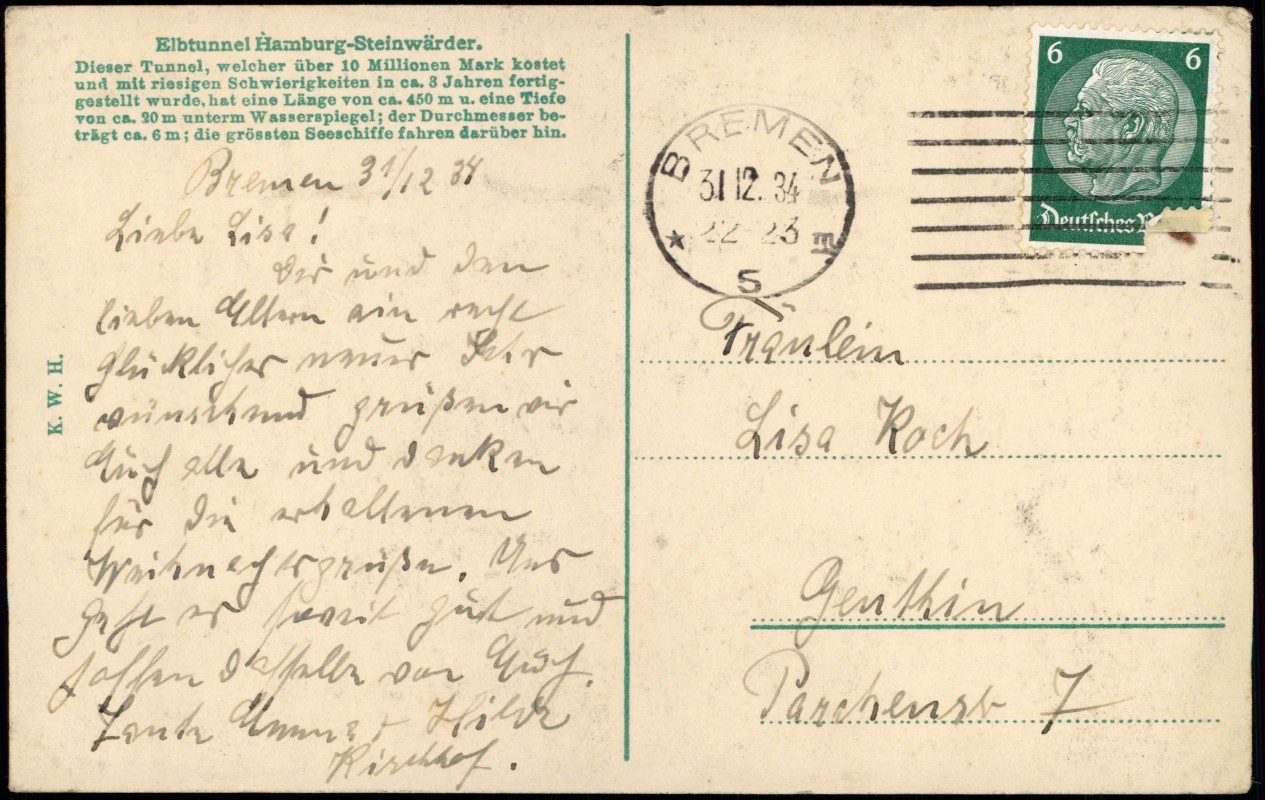 Elbtunnel Hamburg-Steinwärder.
Dieser Tunnel, welcher über 10 Millionen Mark kostet
und mit riesigen Schwierigkeiten in ca. 3 Jahren fertig-
gestellt wurde, hat eine Länge von ca. 450 m u. eine Tiefe
von ca. 20 m unterm Wasserspiegel; der Durchmesser be-
trägt ca. 6 m; die grössten Seeschiffe fahren darüber hin.
K. W. H.
Bremen 31/12 34
Liebe Lisa!
Dir und den
lieben Eltern ein recht
glückliches neues Jahr
wünschend grüßen wir
Euch alle und danken
für die erhaltenen
Weihnachtsgrüße. Uns
geht es soweit gut und
hoffen dasselbe von Euch.
Tante Hilde
Kirchhof.
BREMEN
31.12.34
22-23
5
6 6
Deutsches
Fräulein
Lisa Koch
Genthin
Parchenstr 7